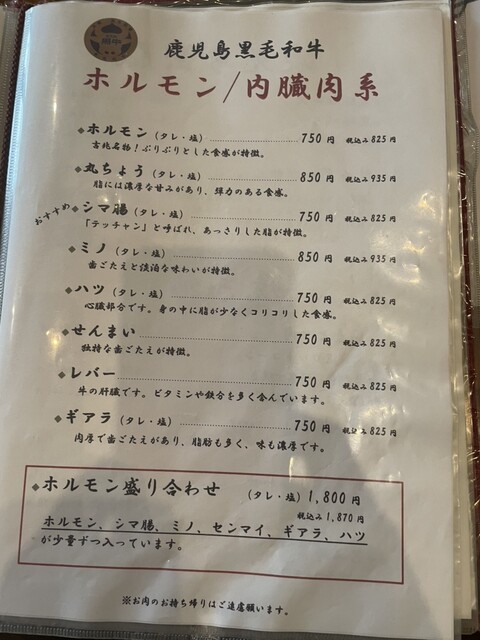 鹿児島黒毛和牛
ホルモン/内臓肉系
◆ホルモン(タレ・塩) 750円 税込み825円
吉兆名物!ぷりぷりとした食感が特徴。
◆丸ちょう(タレ・塩) 850円 税込み935円
脂には濃厚な甘みがあり、弾力のある食感。
おすすめ
◆シマ腸(タレ・塩) 750円 税込み825円
「テッチャン」と呼ばれ、あっさりした脂が特徴。
◆ミノ(タレ・塩) 850円 税込み935円
歯ごたえと淡泊な味わいが特徴。
◆ハツ(タレ・塩) 750円 税込み825円
心臓部分です。身の中に脂が少なくコリコリした食感。
◆せんまい 750円 税込み825円
独特な歯ごたえが特徴。
◆レバー 750円 税込み825円
牛の肝臓です。ビタミンや鉄分を多く含んでいます。
◆ギアラ(タレ・塩) 750円 税込み825円
肉厚で歯ごたえがあり、脂肪も多く、味も濃厚です。
◆ホルモン盛り合わせ (タレ・塩)1,800円
税込み1,870円
ホルモン、シマ腸、ミノ、センマイ、ギアラ、ハツ
が少量ずつ入っています。
※お肉のお持ち帰りはご遠慮願います。